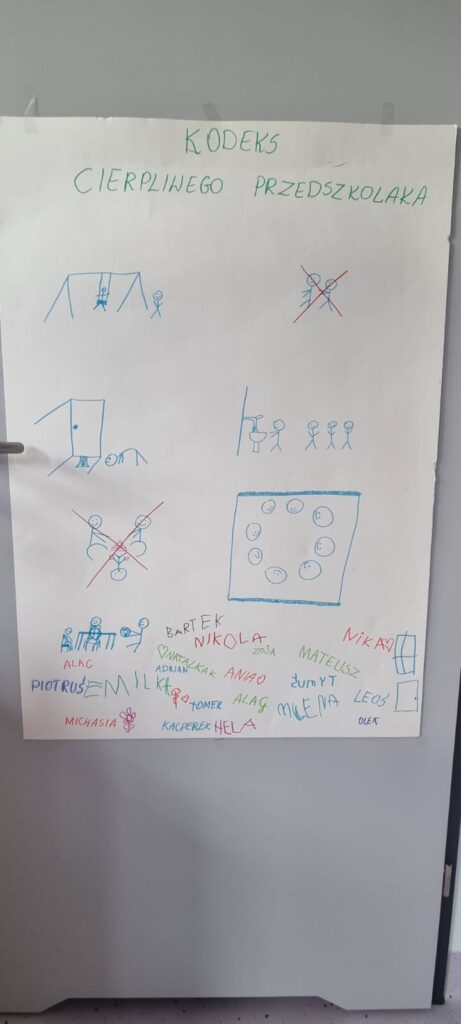 KODEKS
CIERPLIWEGO PRZEDSZKOLAKA
BARTEK
NIKOLA
ZOJA
NIKA
ALAG
NATALKAK
MATEUSZ
ADRIAN
ANIAO
PIOTRUŚ
EMILKA
TOMER
ALAG
MILENA
LEOŚ
MICHASIA
KACPEREK
HELA
OLEK